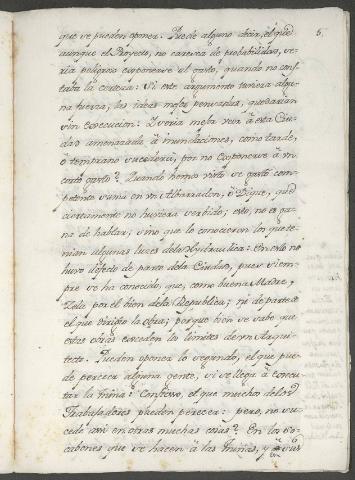 5.
que se pueden oponer. Puede alguno decir, el que
aunque el Proyecto, no carezca de probabilidad, se-
ria peligroso exponerse al gasto, quando no cons-
taba la certeza: Si este argumento tuviera algu-
na fuerza, las ideas mejor pensadas, quedarian
sin execucion: Y seria mejor vivir à esta Ciu-
dad amenazada à inundaciones, como tarde,
o temprano sucederà, por no exponerse à vn
corto gasto? Quando hemos visto se gastó com-
petente suma en vn Albarradon, ò Dique, que
ciertamente no huviera servido; esto, no es ga-
na de hablar, sino que lo conocieron los que te-
nian algunas luces dela Hydraulica: En esto no
huvo defecto de parte dela Ciudad, pues siem-
pre se ha conocido, que, como buena Madre,
Zela por el bien dela Republica; ni de parte de
el que dirigio la obra; porque bien se sabe que
estas obras exceden los limites de vn Arqui-
tecto. Pueden oponer lo segundo, el que pue-
de perecer alguna gente, si se llega à execu-
tar la mina: Confieso, el que muchos delos
Trabajadores pueden perecer: pero, no su-
cede assi en otras muchas cosas? En los so-
cabones que se hacen à las Minas, y